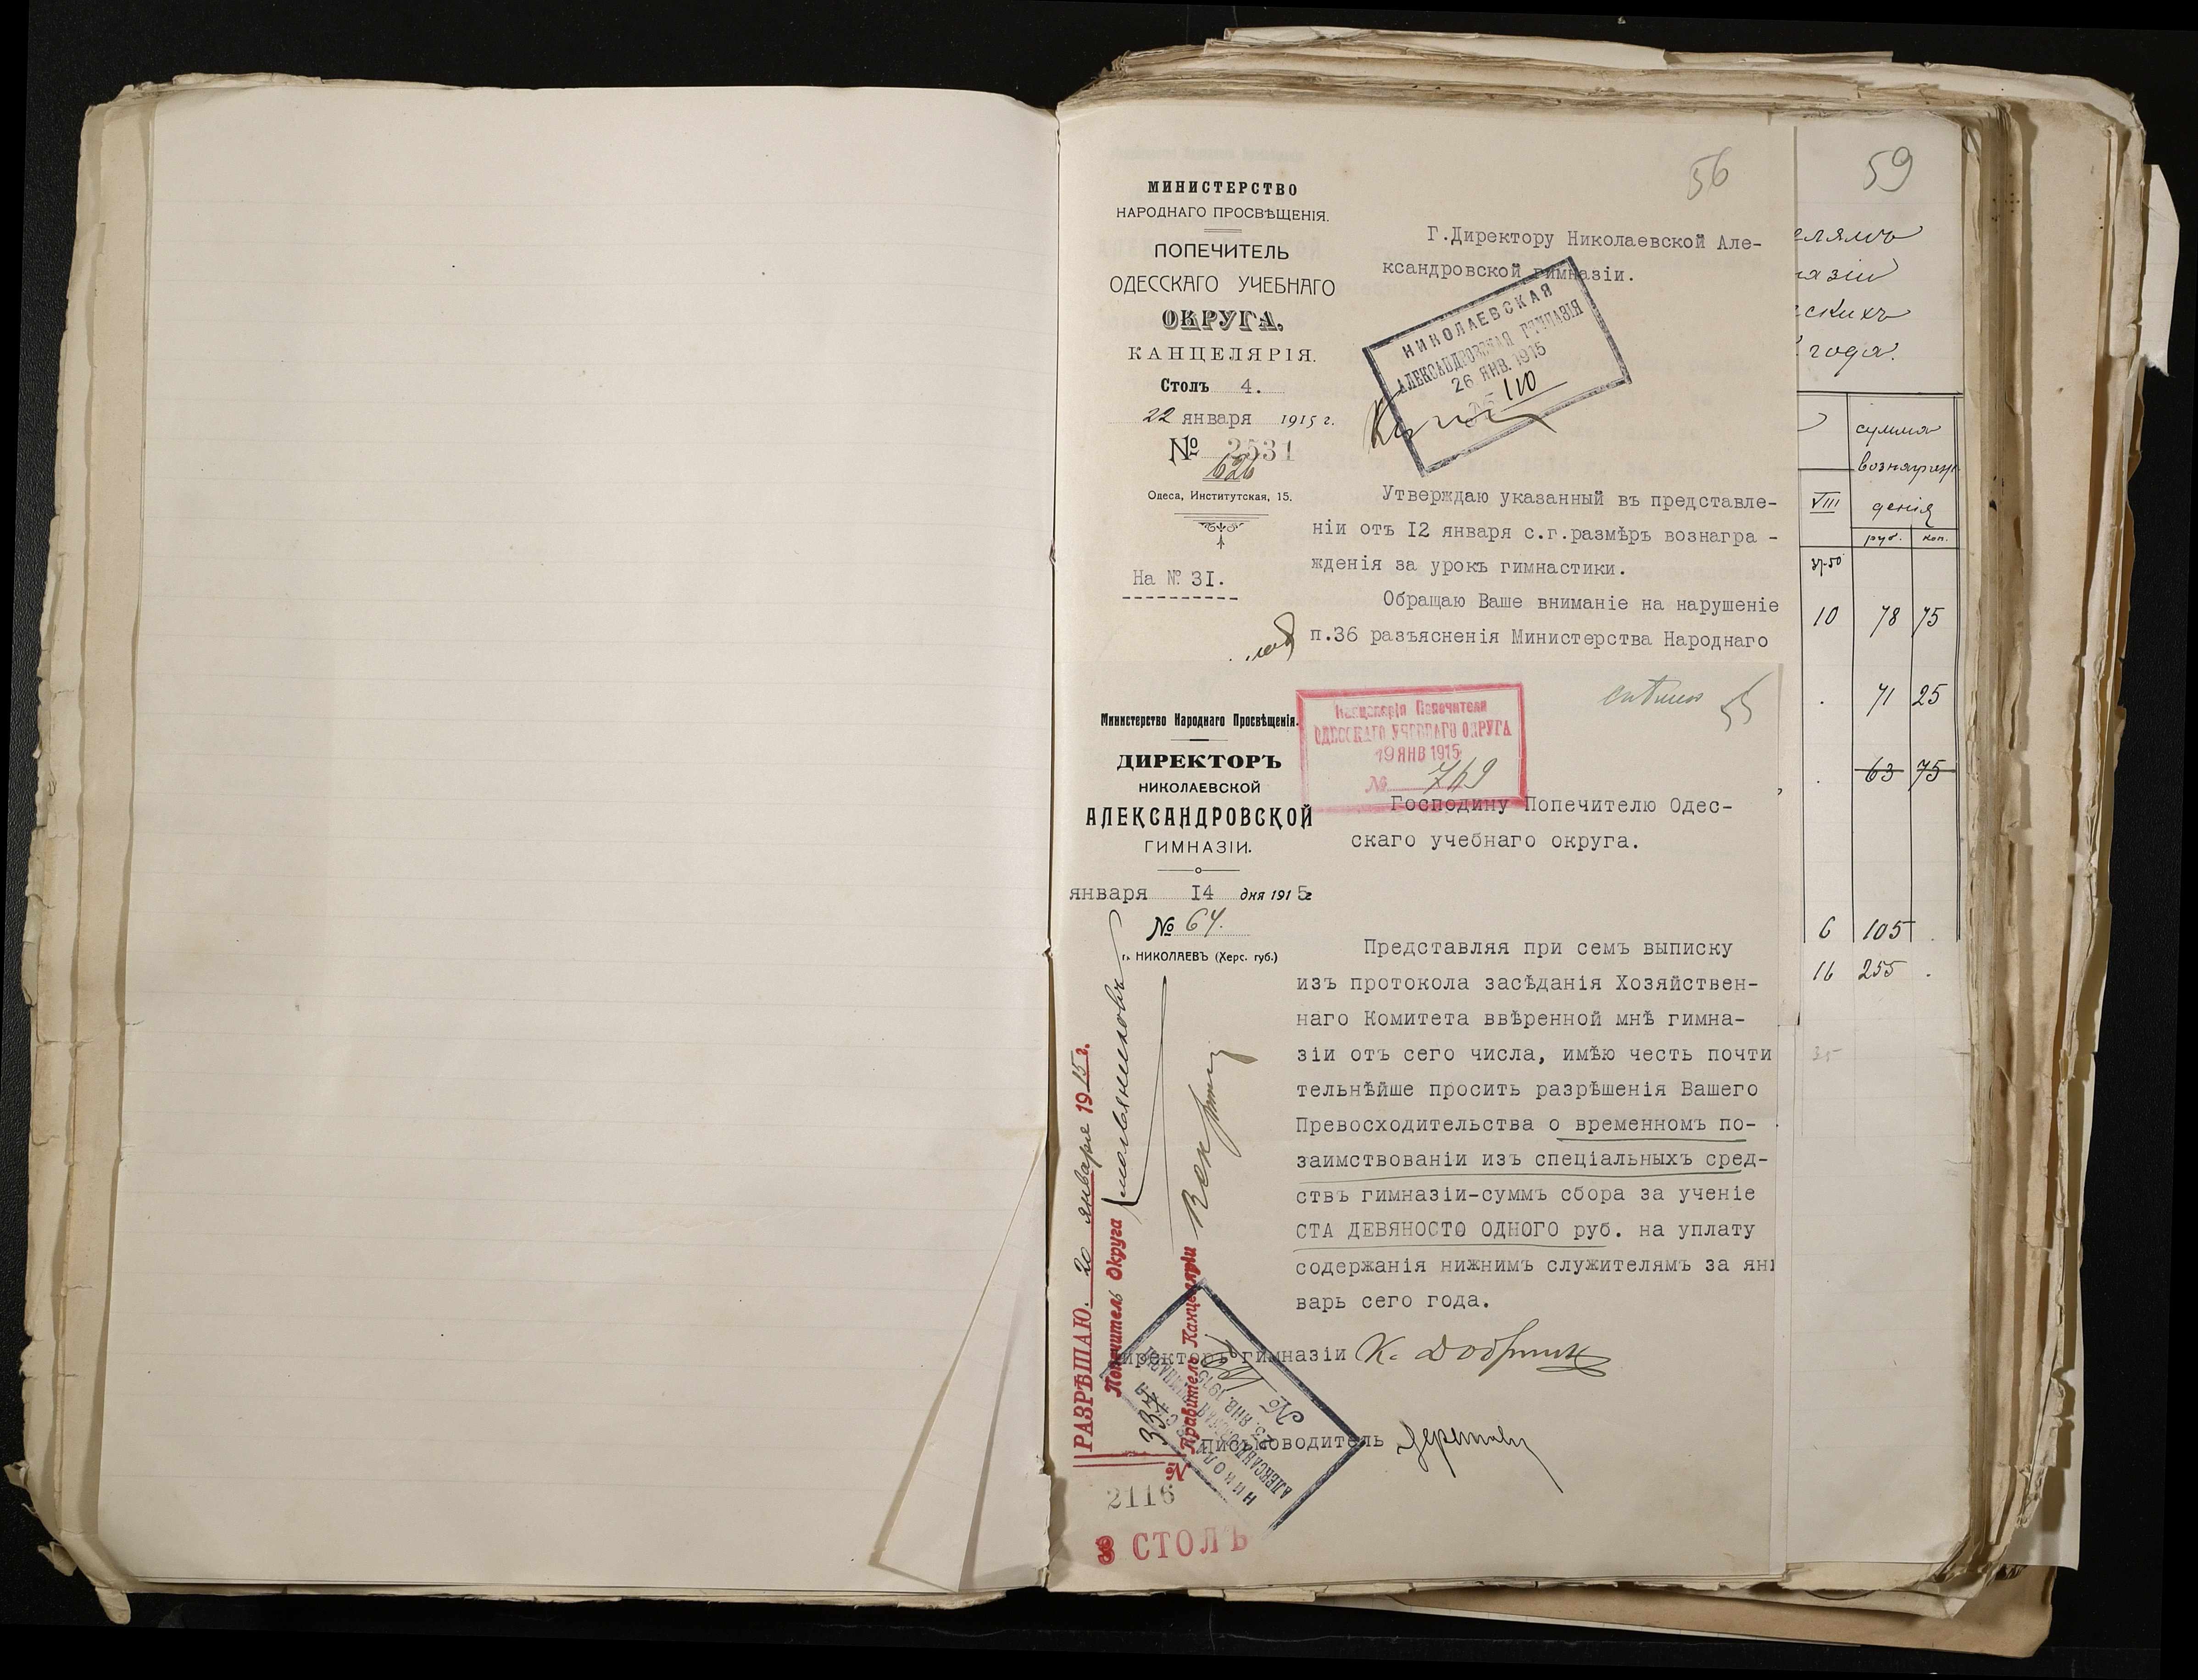 56
МИНИСТЕРСТВО
НАРОДНАГО ПРОСВѢЩЕНІЯ.
ПОПЕЧИТЕЛЬ
ОДЕССКАГО УЧЕБНАГО
ОКРУГА.
КАНЦЕЛЯРІЯ.
Столъ 4.
22 января 1915 г.
№ 2531
626
Одеса, Институтская, 15.
На № 31.
Г.Директору Николаевской Але-
ксандровской гимназіи.
НИКОЛАЕВСКАЯ
АЛЕКСАНДРОВСКАЯ ГИМНАЗІЯ
26 ЯНВ. 1915
№ 110
Утверждаю указанный въ представле-
ніи отъ I2 января с.г.размѣръ вознагра -
жденія за урокъ гимнастики.
Обращаю Ваше вниманіе на нарушеніе
п.36 разъясненія Министерства Народнаго
55
Министерство Народнаго Просвѣщенія.
ДИРЕКТОРЪ
НИКОЛАЕВСКОЙ
АЛЕКСАНДРОВСКОЙ
ГИМНАЗІИ.
января I4 дня 1915 г
№ 64.
г. НИКОЛАЕВЪ (Херс. губ.)
Канцелярія Попечителя
ОДЕССКАГО УЧЕБНАГО ОКРУГА
19 ЯНВ 1915
№ 769
Господину Попечителю Одес-
скаго учебнаго округа.
Представляя при семъ выписку
изъ протокола засѣданія Хозяйствен-
наго Комитета ввѣренной мнѣ гимна-
зіи отъ сего числа, имѣю честь почти
тельнѣйше просить разрѣшенія Вашего
Превосходительства о временномъ по-
заимствованіи изъ спеціальныхъ сред-
ствъ гимназіи-суммъ сбора за ученіе
СТА ДЕВЯНОСТО ОДНОГО руб. на уплату
содержанія нижнимъ служителямъ за ян
варь сего года.
Директоръ гимназіи
Письмоводитель
РАЗРѢШАЮ. 20 января 1915 г.
Попечитель Округа
Правитель Канцеляріи
№ 337
НИКОЛАЕВСКАЯ
АЛЕКСАНДРОВСКАЯ ГИМНАЗІЯ
23 ЯНВ. 1915
№
2116
СТОЛЪ
59
елямъ
назіи
скихъ
года.
сумма
вознаграж
денія
VIII
руб. коп.
37-50
10 78 75
. 71 25
. 63 75
6 105 .
16 255 .